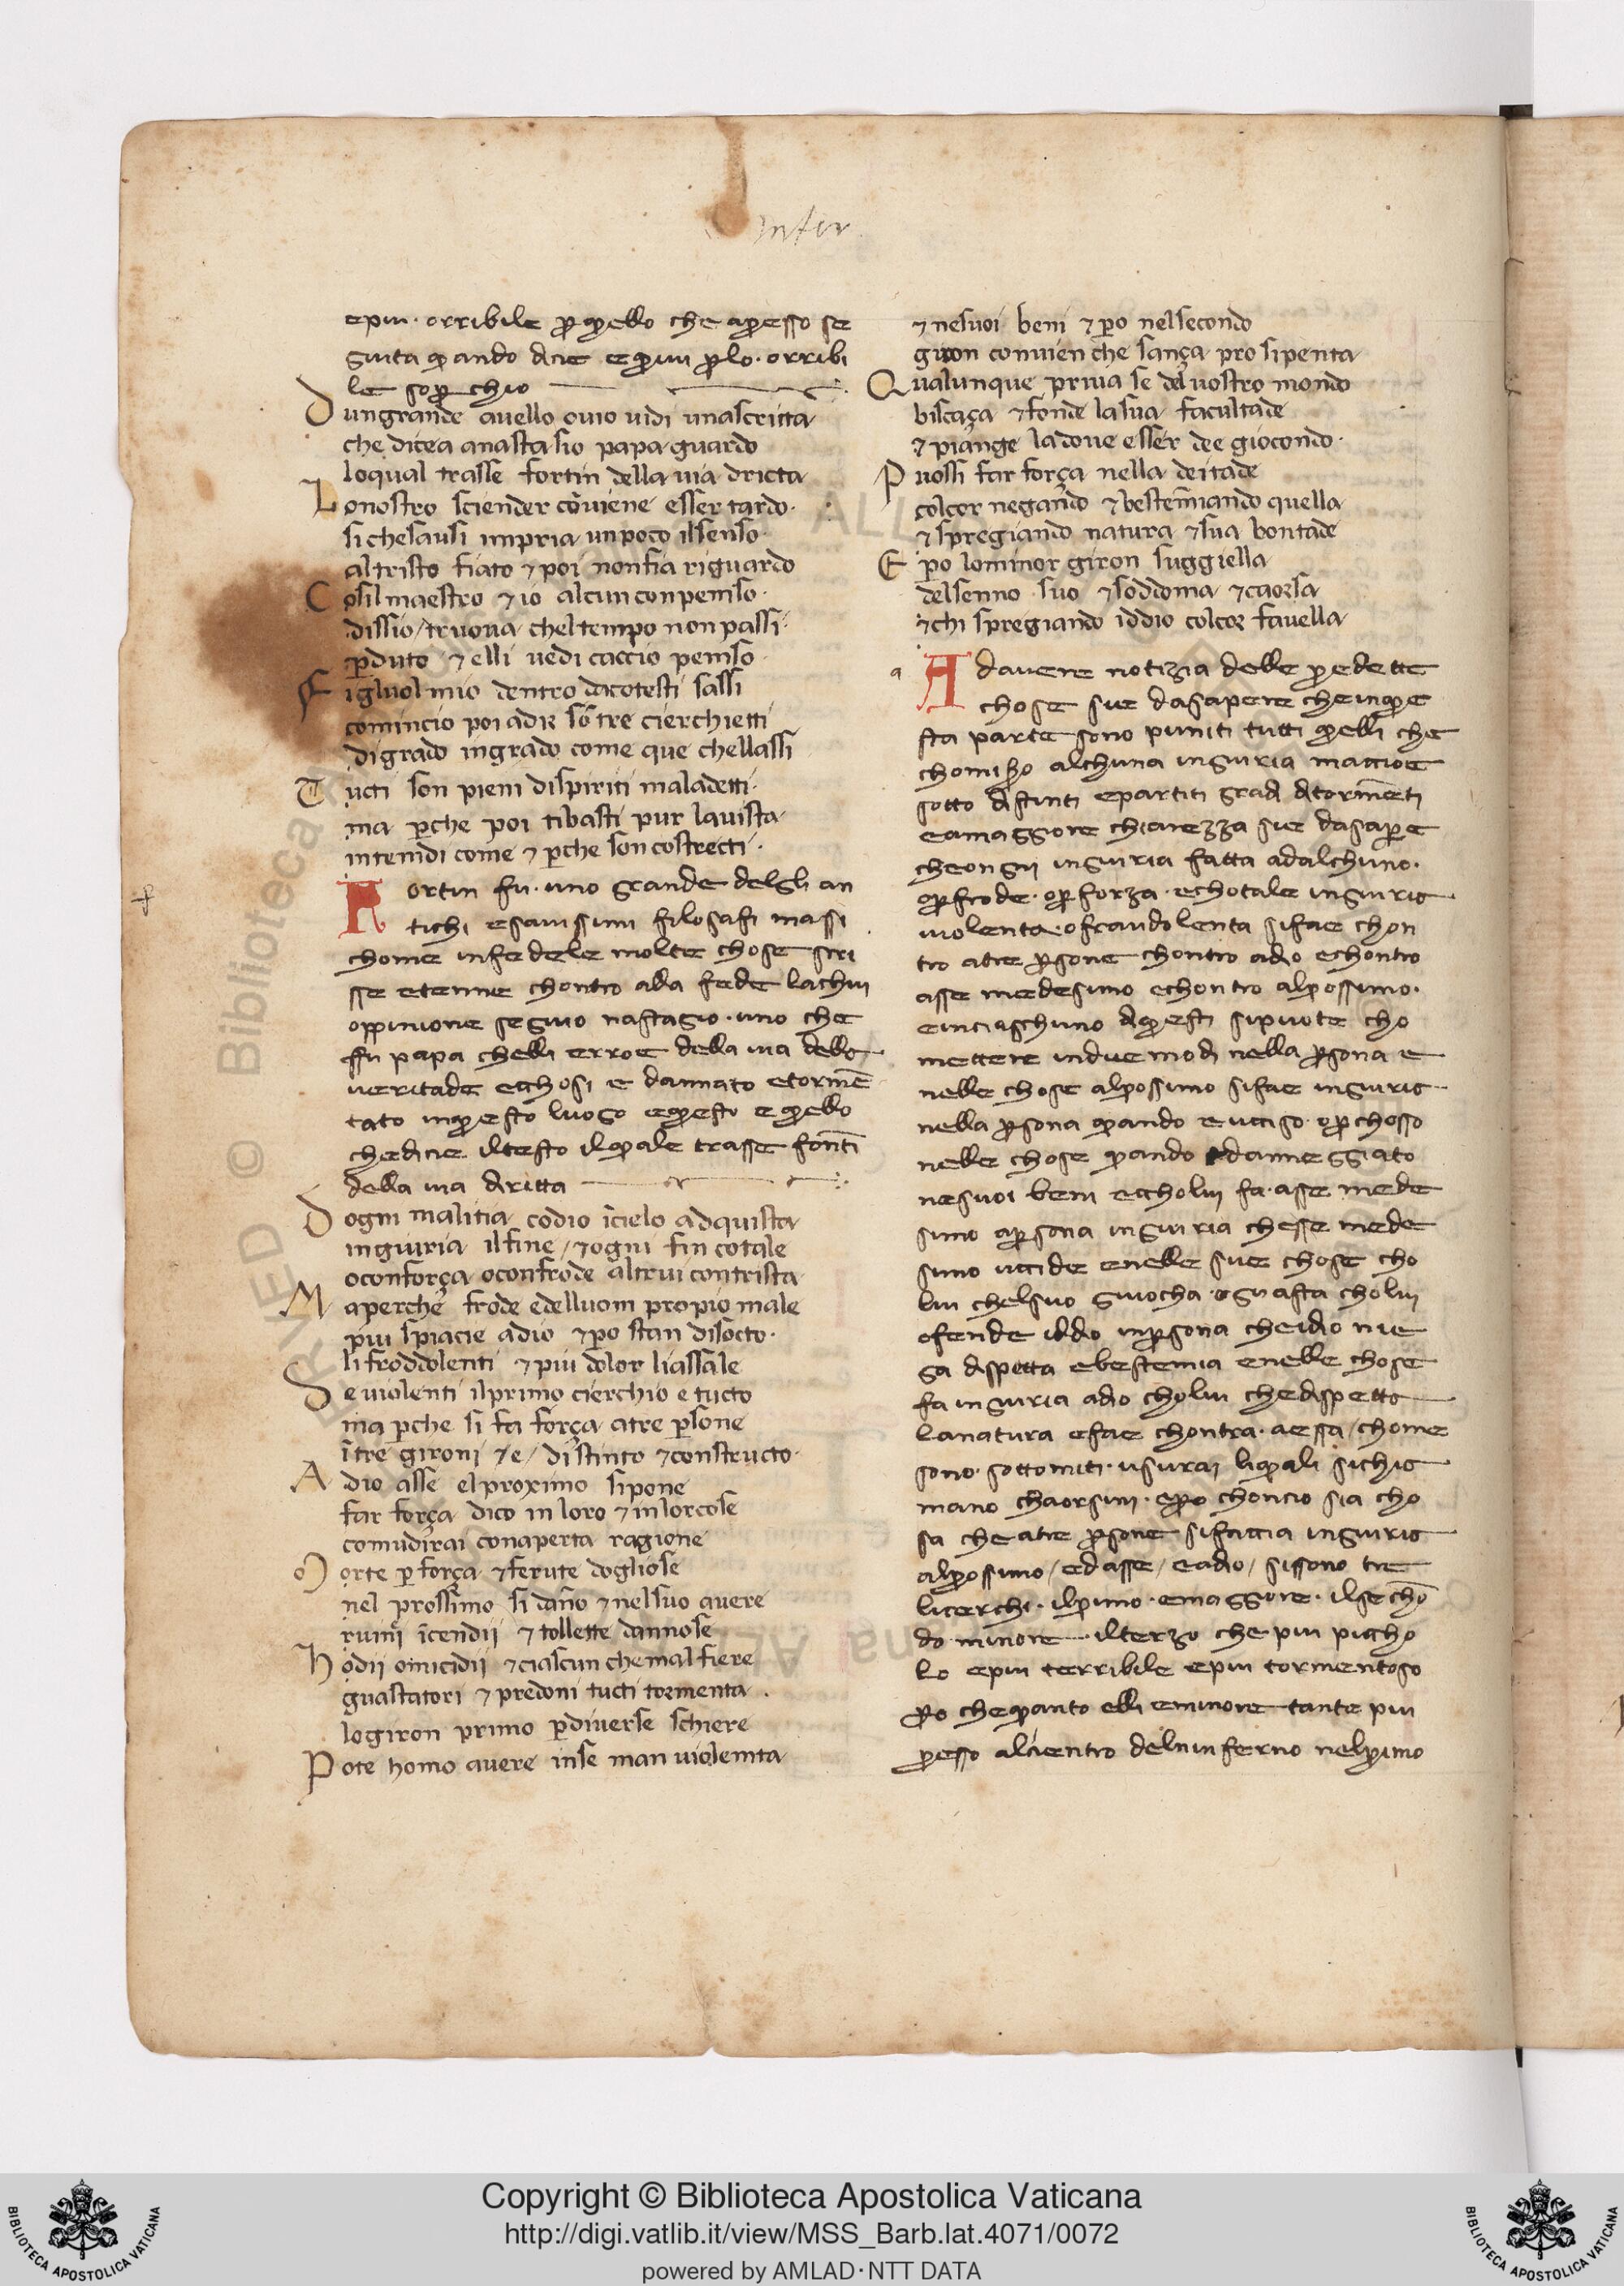 Infer
epiu · orribile p quello che apresso se
guita quando dice e qui p lo · orribi
le soperchio
Dungrande auello ouio uidi unascritta
che dicea anastasio papa guardo
loqual trasse fortin della uia dricta
Lonostro sciender cōuiene esser tardo ·
si chesausi impria unpoco ilsenso
altristo fiato ⁊ poi nonfia riguardo
Cosil maestro ⁊ io alcun conpenso ·
dissio / truoua cheltempo non passi ·
perduto ⁊ elli uedi caccio penso
Figluol mio dentro dacotesti sassi
comincio poi adir sō tre cierchietti
digrado ingrado come que chellassi
Tucti son pieni dispiriti maladetti ·
ma perche poi tibasti pur lauista
intendi come ⁊ perche son costrecti ·
Fortin fu · uno grande delgli an
tichi esauissimi filosafi massi
chome infedele molte chose scri
sse etenne chontro alla fede lachui
oppinione seguio nastagio · uno che
fu papa chelli errore della uia della
ueritade ecchosi e dannato etormē
tato inquesto luogo equesto e quello
chedicie iltesto ilquale trasse fontī
della uia diritta
Dogni malitia codio īcielo adquista
ingiuria ilfine / ⁊ogni fin cotale
oconforça oconfrode altrui contrista
Maperche frode edelluom propio male
piu spiacie adio ⁊ pero stan disocto ·
li froddolenti ⁊ piu dolor liassale
De uiolenti ilprimo cierchio e tucto
ma perche si fa força atre persone
ītre gironi / e / distinto ⁊constructo ·
Adio asse elproximo sipone
far força dico in loro ⁊ inlorcose
comudirai conaperta ragione
Morte per força ⁊ferute dogliose
nel prossimo si dāno ⁊nelsuo auere
ruine īcendii ⁊ tollette dannose
Hodii omicidii ⁊ciascun chemal fiere
guastatori ⁊ predoni tucti tormenta ·
logiron primo perdiuerse schiere
Pote homo auere inse man uiolenta
⁊ nesuoi beni ⁊ pero nelsecondo
giron conuien che sança pro sipenta
Qualunque priua se del uostro mondo
biscaça ⁊fonde lasua facultade
⁊ piange ladoue esser dee giocondo ·
Puossi far força nella deitade
colcor negando ⁊bestemiando quella
⁊ spregiando natura ⁊sua bontade
E pero lominor giron suggiella
delsenno suo ⁊soddoma ⁊caorsa
⁊chi spregiando iddio colcor fauella
a Adauere notizia delle predette
chose sue dasapere cheinque
sta parte sono puniti tutti quelli che
alchuna ingiuria
sotto distinti epartiti gradi ditormēti
eamaggiore chiarezza sue dasapere
cheongni ingiuria fatta adalchuno ·
operfrode · operforza · echotale ingiuria
uiolenta · ofraudolenta sifae chon
tro atre persone chontro adio echontro
asse medesimo echontro alprossimo ·
einciaschuno diquesti sipuote cho
mettere indue modi nella persona e
nelle chose alprossimo sifae ingiuria
nella persona quando e ucciso · operchosso
nelle chose quando e danneggiato
nesuoi beni eccholui fa · asse mede
simo apersona ingiuria chesse mede
simo uccide enelle sue chose cho
lui chelsuo giuocha · oguasta cholui
ofende iddio inpersona cheidio nie
ga dispetta ebestemia enelle chose
fa ingiuria adio cholui chedispetta
lanatura efae chontra · aessa / chome
sono · sottomiti · usurai liquali sichia
mano chaorsini · epero choncio sia cho
sa cheatre persone sifaccia ingiuria
alprossimo / edasse / eadio / sissono tre
licerchi · ilprimo · emaggiore · ilsechō
do minore · ilterzo che piu piccho
lo epiu terribile epiu tormentoso
pero chequanto elli eminore tante piu
presso alcientro delninferno nelprimo
Copyright © Biblioteca Apostolica Vaticana
http://digi.vatlib.it/view/MSS_Barb.lat.4071/0072
powered by AMLAD·NTT DATA
BIBLIOTECA APOSTOLICA VATICANA
BIBLIOTECA APOSTOLICA VATICANA